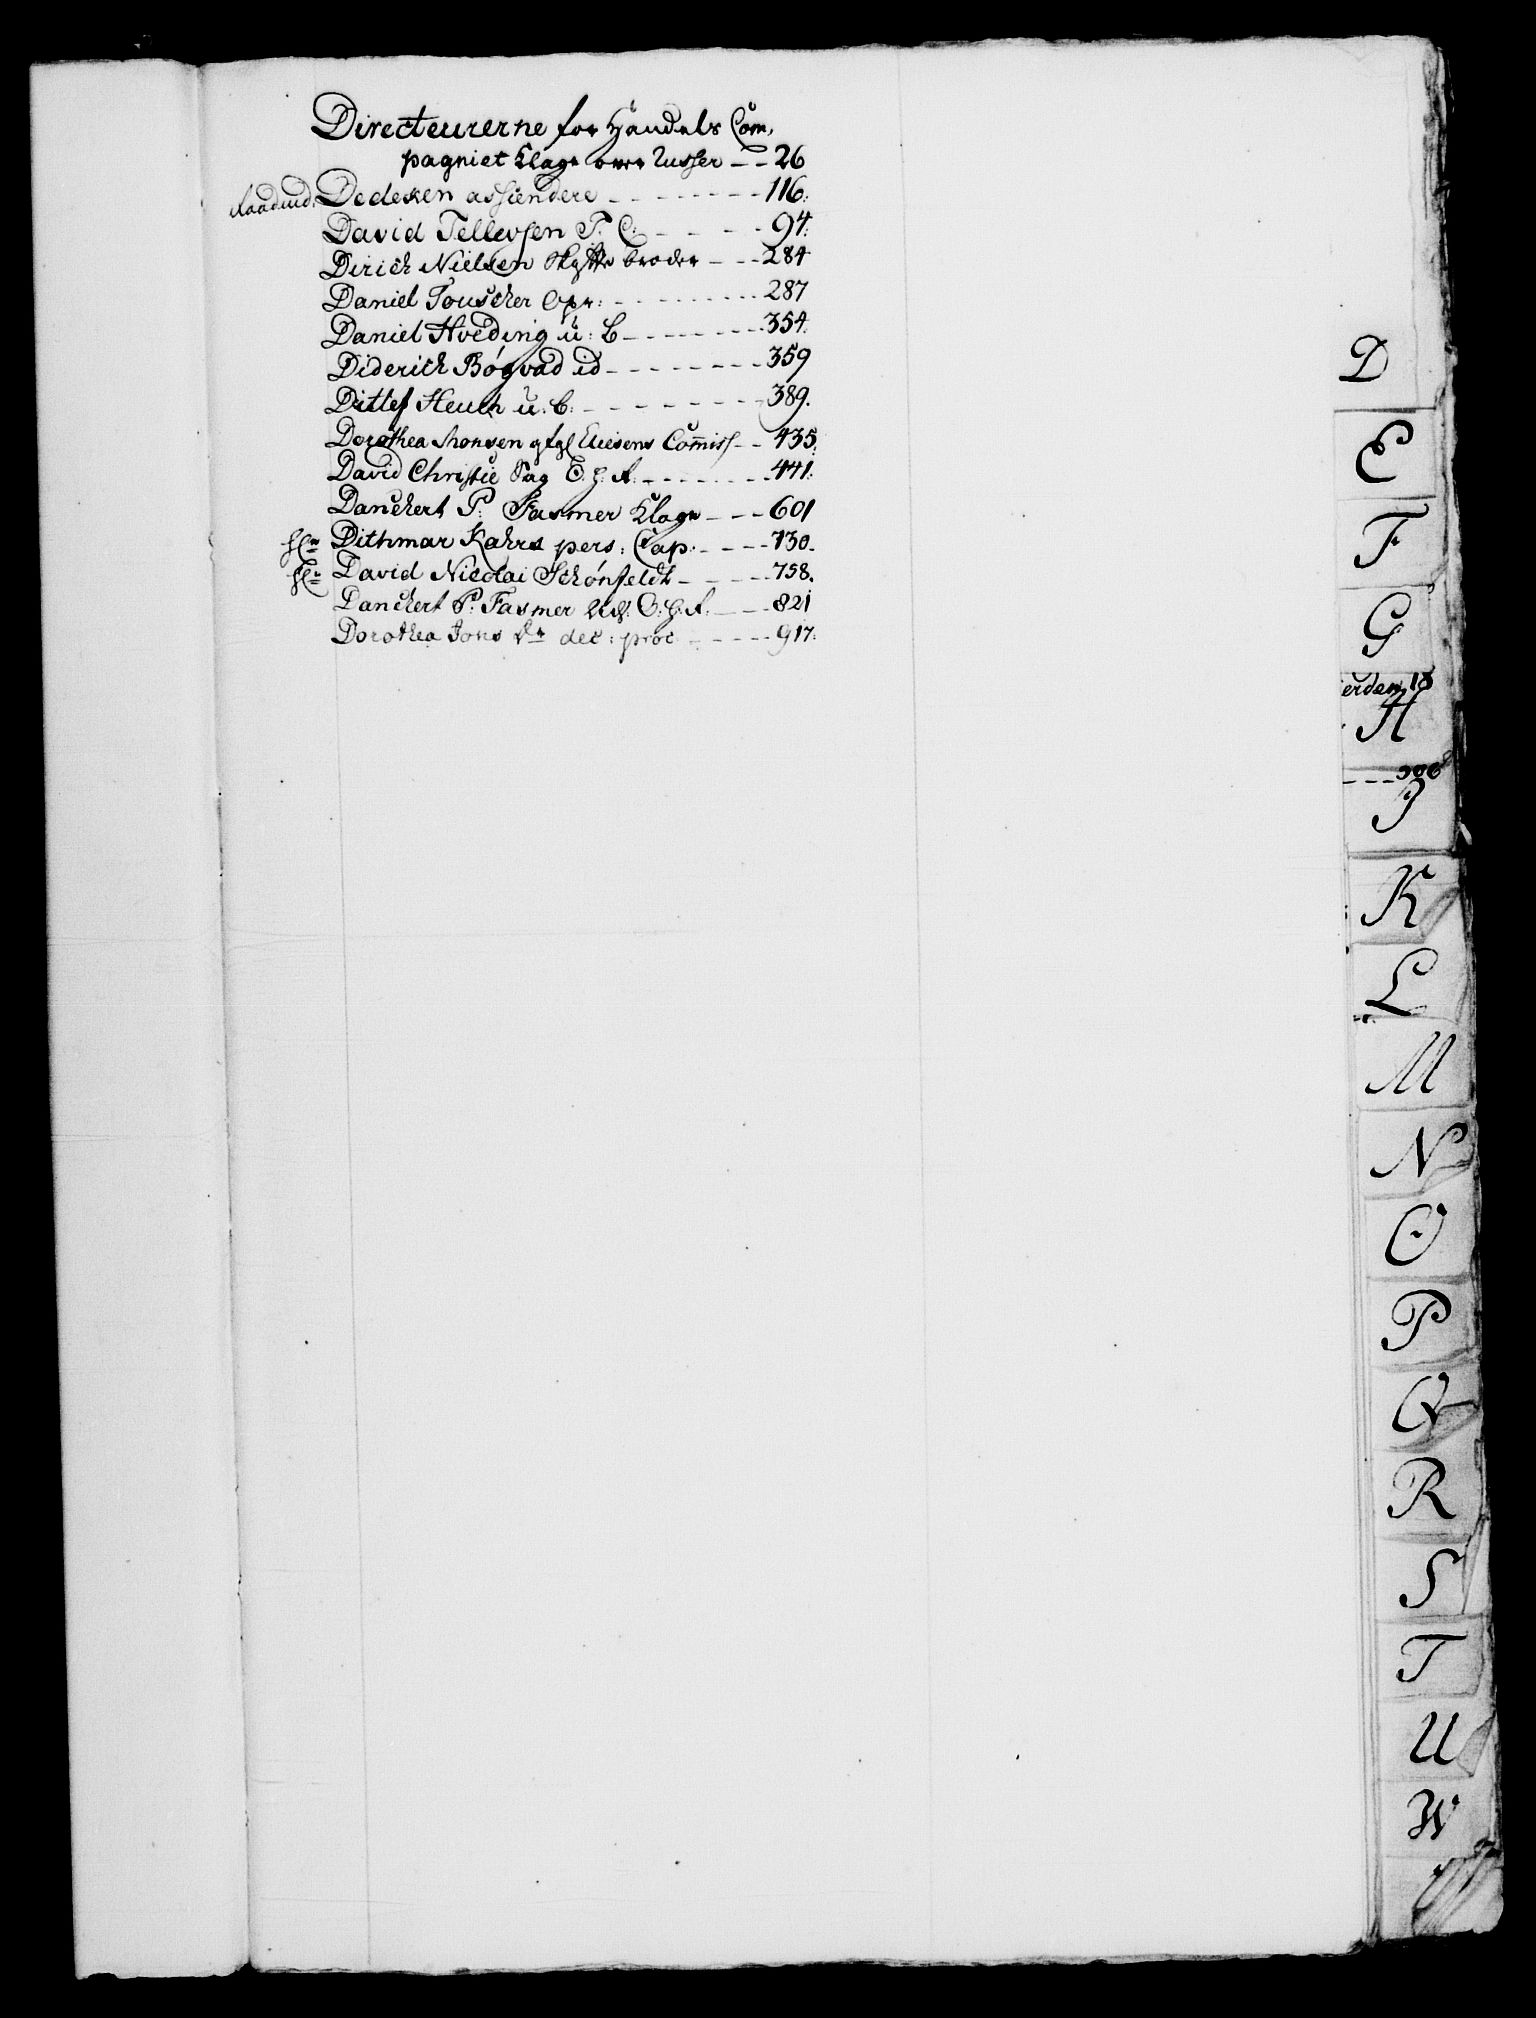 Directeurerne for Handels Com,
pagniet Klage over Russer -- 26
Raadmd: Dedeken assiendere -------- 116:
David Tellevsen P. C: ----- 94:
Dirich Nielsen Skytte broder --- 284
Daniel Touscher Opr: --------- 287
Daniel Hveding u: b -------- 354:
Diderich Bøgvad id -------- 359
Ditlef Heuch u: b: -------- 389.
Dorothea Monsen Eliesens Comiss -- 435:
David Christie Sag O. H: A. ------- 441:
Danckert P: Fasmer Klage --- 601
Hr Dithmar Kahrs pers: Cap: ---- 730.
Hr David Nicolai Schønfeldt ---- 758.
Danckert P: Fasmer O: H: A: --- 821
Dorothea Jons Dr dec: proc ----- 917:
D
E
F
G
erden 18
H
I
K
L
M
N
O
P
Q
R
S
T
U
W